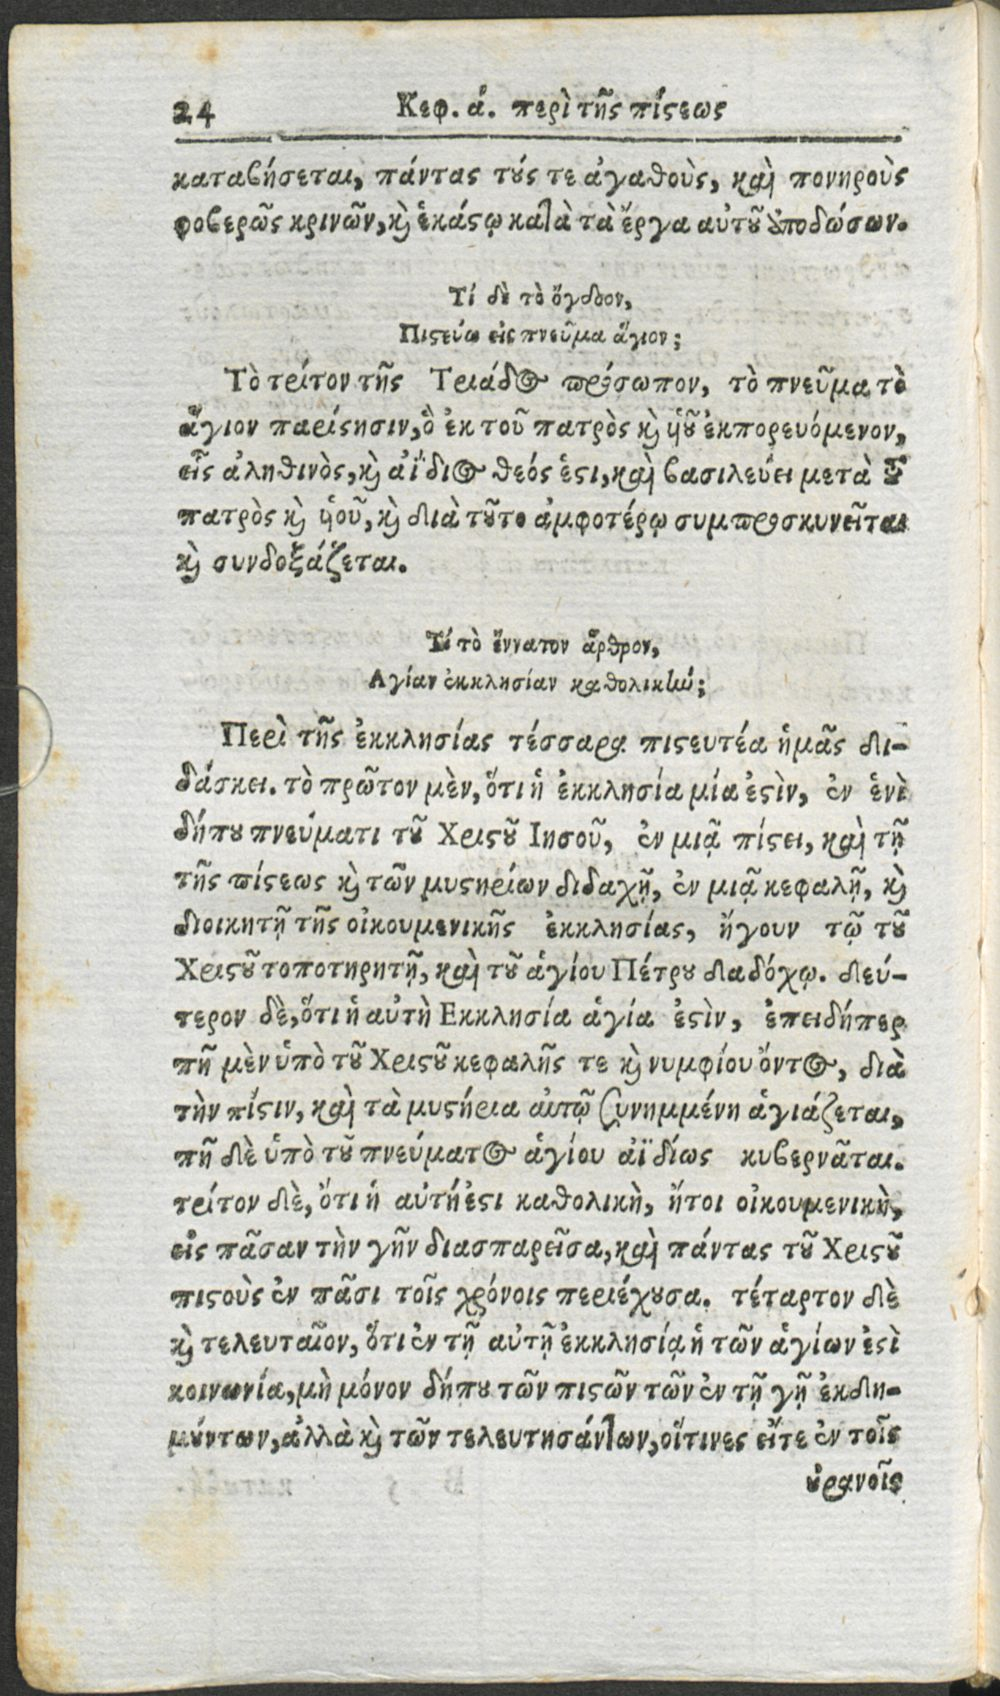 24 Κεφ. ά. περὶ τῆς πίστεως
καταβήσεται, πάντας τούς τε ἀγαθοὺς, καὶ πονηροὺς
φοβερῶς κρινῶν, καὶ ἑκάστῳ κατὰ τὰ ἔργα αὐτοῦ ἀποδώσων.
Τί δὲ τὸ ὄγδοον,
Πιστεύω εἰς πνεῦμα ἅγιον;
Τὸ τρίτον τῆς Τριάδος πρόσωπον, τὸ πνεῦμα τὸ
ἅγιον παρίστησιν, ὃ ἐκ τοῦ πατρὸς καὶ ὑοῦ ἐκπορευόμενον,
εἷς ἀληθινὸς, καὶ ἀΐδιος θεός ἐστι, καὶ βασιλεύει μετὰ τοῦ
πατρὸς καὶ ὑοῦ, καὶ διὰ τοῦτο ἀμφοτέρῳ συμπροσκυνεῖται
καὶ συνδοξάζεται.
Τί τὸ ἔννατον ἄρθρον,
Αγίαν ἐκκλησίαν καθολικήν;
Περὶ τῆς ἐκκλησίας τέσσαρα πιστευτέα ἡμᾶς δι-
δάσκει. τὸ πρῶτον μὲν, ὅτι ἡ ἐκκλησία μία ἐστὶν, ἐν ἑνὶ
δήπου πνεύματι τοῦ Χριστοῦ Ιησοῦ, ἐν μιᾷ πίστει, καὶ τῇ
τῆς πίστεως καὶ τῶν μυστηρίων διδαχῇ, ἐν μιᾷ κεφαλῇ, καὶ
διοικητῇ τῆς οἰκουμενικῆς ἐκκλησίας, ἤγουν τῷ τοῦ
Χριστοῦ τοποτηρητῇ, καὶ τοῦ ἁγίου Πέτρου διαδόχῳ. δεύ-
τερον δὲ, ὅτι ἡ αὐτὴ Εκκλησία ἁγία ἐστὶν, ἐπειδήπερ
πῆ μὲν ὑπὸ τοῦ Χριστοῦ κεφαλῆς τε καὶ νυμφίου ὄντος, διὰ
τὴν πίστιν, καὶ τὰ μυστήρια αὐτῷ συνημμένη ἁγιάζεται,
πῆ δὲ ὑπὸ τοῦ πνεύματος ἁγίου ἀϊδίως κυβερνᾶται.
τρίτον δὲ, ὅτι ἡ αὐτή ἐστι καθολικὴ, ἤτοι οἰκουμενικὴ,
εἰς πᾶσαν τὴν γῆν διασπαρεῖσα, καὶ πάντας τοῦ Χριστοῦ
πιστοὺς ἐν πᾶσι τοῖς χρόνοις περιέχουσα. τέταρτον δὲ
καὶ τελευταῖον, ὅτι ἐν τῇ αὐτῇ ἐκκλησίᾳ ἡ τῶν ἁγίων ἐστὶ
κοινωνία, μὴ μόνον δήπου τῶν πιστῶν τῶν ἐν τῇ γῇ ἐκδη-
μούντων, ἀλλὰ καὶ τῶν τελευτησάντων, οἵτινες εἴτε ἐν τοῖς
οὐρανοῖς